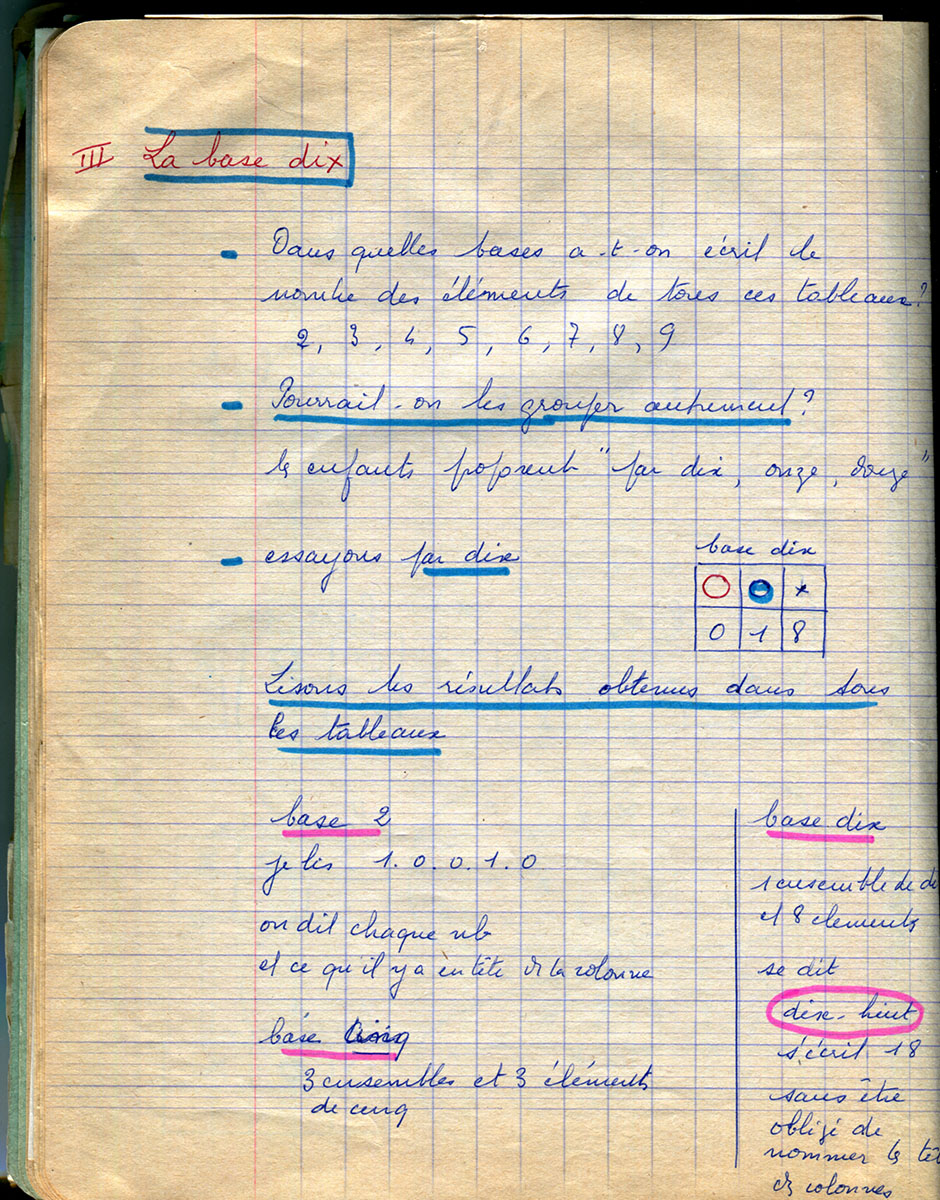 III La base dix
- Dans quelles bases a-t-on écrit le
nombre des éléments de tous ces tableaux?
2, 3, 4, 5, 6, 7, 8, 9
- Pourrait-on les grouper autrement?
les enfants proposent "par dix, onze, douze"
- essayons par dix
base dix
x
0 1 8
Lisons les résultats obtenus dans tous
les tableaux
base 2
je lis 1.0.0.1.0
on dit chaque nb
et ce qu'il y a en tête de la colonne
base cinq
3 ensembles et 3 éléments
de cinq
base dix
1 ensemble de di
et 8 elements
se dit
dix-huit
s'écrit 18
sans être
obligé de
nommer les têt
de colonnes